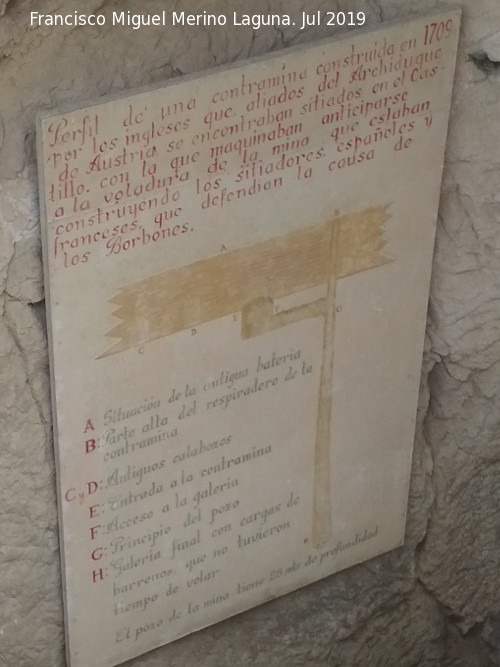 Francisco Miguel Merino Laguna. Jul 2019
Perfil de una contramina construida en 1709
por los ingleses que, aliados del Archiduque
de Austria, se encontraban sitiados en el Cas-
tillo, con la que maquinaban anticiparse
a la voladura de la mina que estaban
construyendo los sitiadores, españoles y
franceses, que defendían la causa de
los Borbones.
A
B
C
D
E
F
G
H
A Situación de la antigua batería
B: Parte alta del respiradero de la
contramina
C y D: Antiguos calabozos
E: Entrada a la contramina
F: Acceso a la galería
G: Principio del pozo
H: Galería final con cargas de
barrenos, que no tuvieron
tiempo de volar
El pozo de la mina tiene 28 mts de profundidad